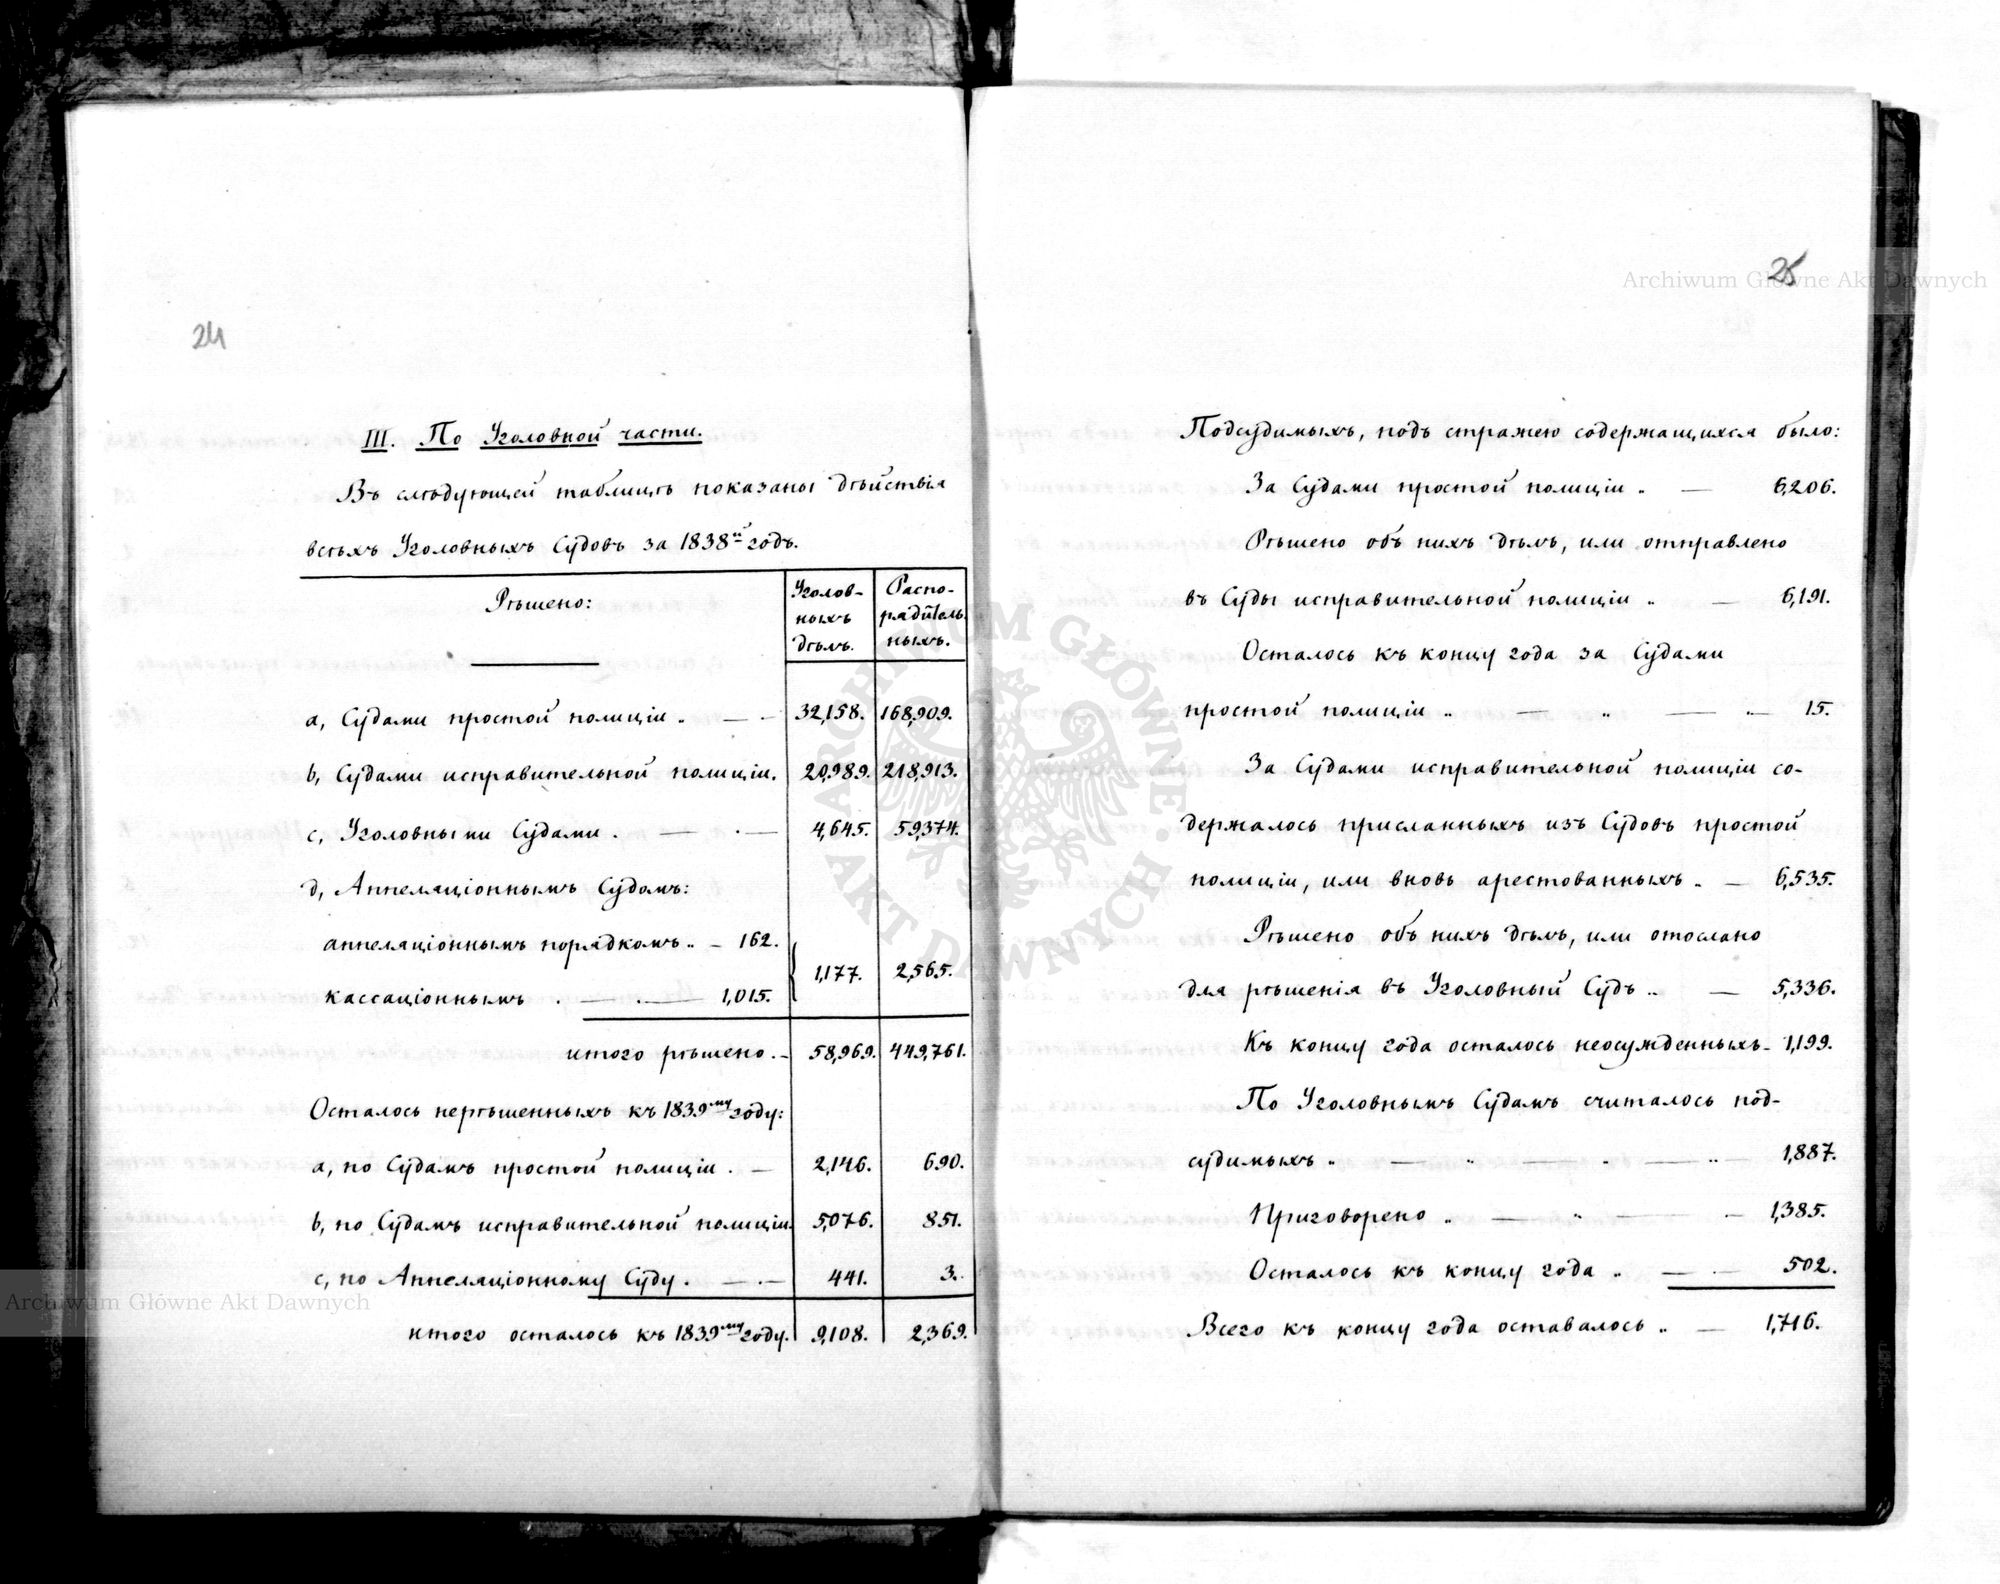 24
III. По Уголовной части.
Въ слѣдующей таблицѣ показаны дѣйствія
всѣхъ Уголовныхъ Судовъ за 1838й годъ.
Рѣшено:
Уголов-
ныхъ
дѣлъ.
Распо-
рядитель-
ныхъ.
а, Судами простой полиціи . — - 32,158. 168,909.
b, Судами исправительной полиціи. 20,989. 218,913.
с, Уголовными Судами . — . — 4,645. 59,374.
д, Аппеляціоннымъ Судомъ:
аппеляціоннымъ порядкомъ .. - 162.
1,177. 2,565.
кассаціоннымъ . — . — 1,015.
итого рѣшено . - 58,969. 449,761.
Осталось нерѣшенныхъ къ 1839му году:
а, по Судамъ простой полиціи . — 2,146. 690.
b, по Судамъ исправительной полиціи. 5,076. 851.
с, по Аппеляціонному Суду . — . — 441. 3.
итого осталось къ 1839му году. 9,108. 2,369.
25
Подсудимыхъ, подъ стражею содержащихся было:
За Судами простой полиціи .. — 6,206.
Рѣшено объ нихъ дѣлъ, или отправлено
въ Суды исправительной полиціи .. — 6,191.
Осталось къ концу года за Судами
простой полиціи .. — .. — .. 15.
За Судами исправительной полиціи со-
держалось присланныхъ изъ Судовъ простой
полиціи, или вновь арестованныхъ . — 6,535.
Рѣшено объ нихъ дѣлъ, или отослано
для рѣшенія въ Уголовный Судъ .. — 5,336.
Къ концу года осталось неосужденныхъ - 1,199.
По Уголовнымъ Судамъ считалось под-
судимыхъ .. — .. — . — .. — 1,887.
Приговорено .. — .. — .. — 1,385.
Осталось къ концу года .. — . — 502.
Всего къ концу года оставалось .. — 1,716.
Archiwum Główne Akt Dawnych
Archiwum Główne Akt Dawnych
ARCHIWUM GŁÓWNE · AKT DAWNYCH ·